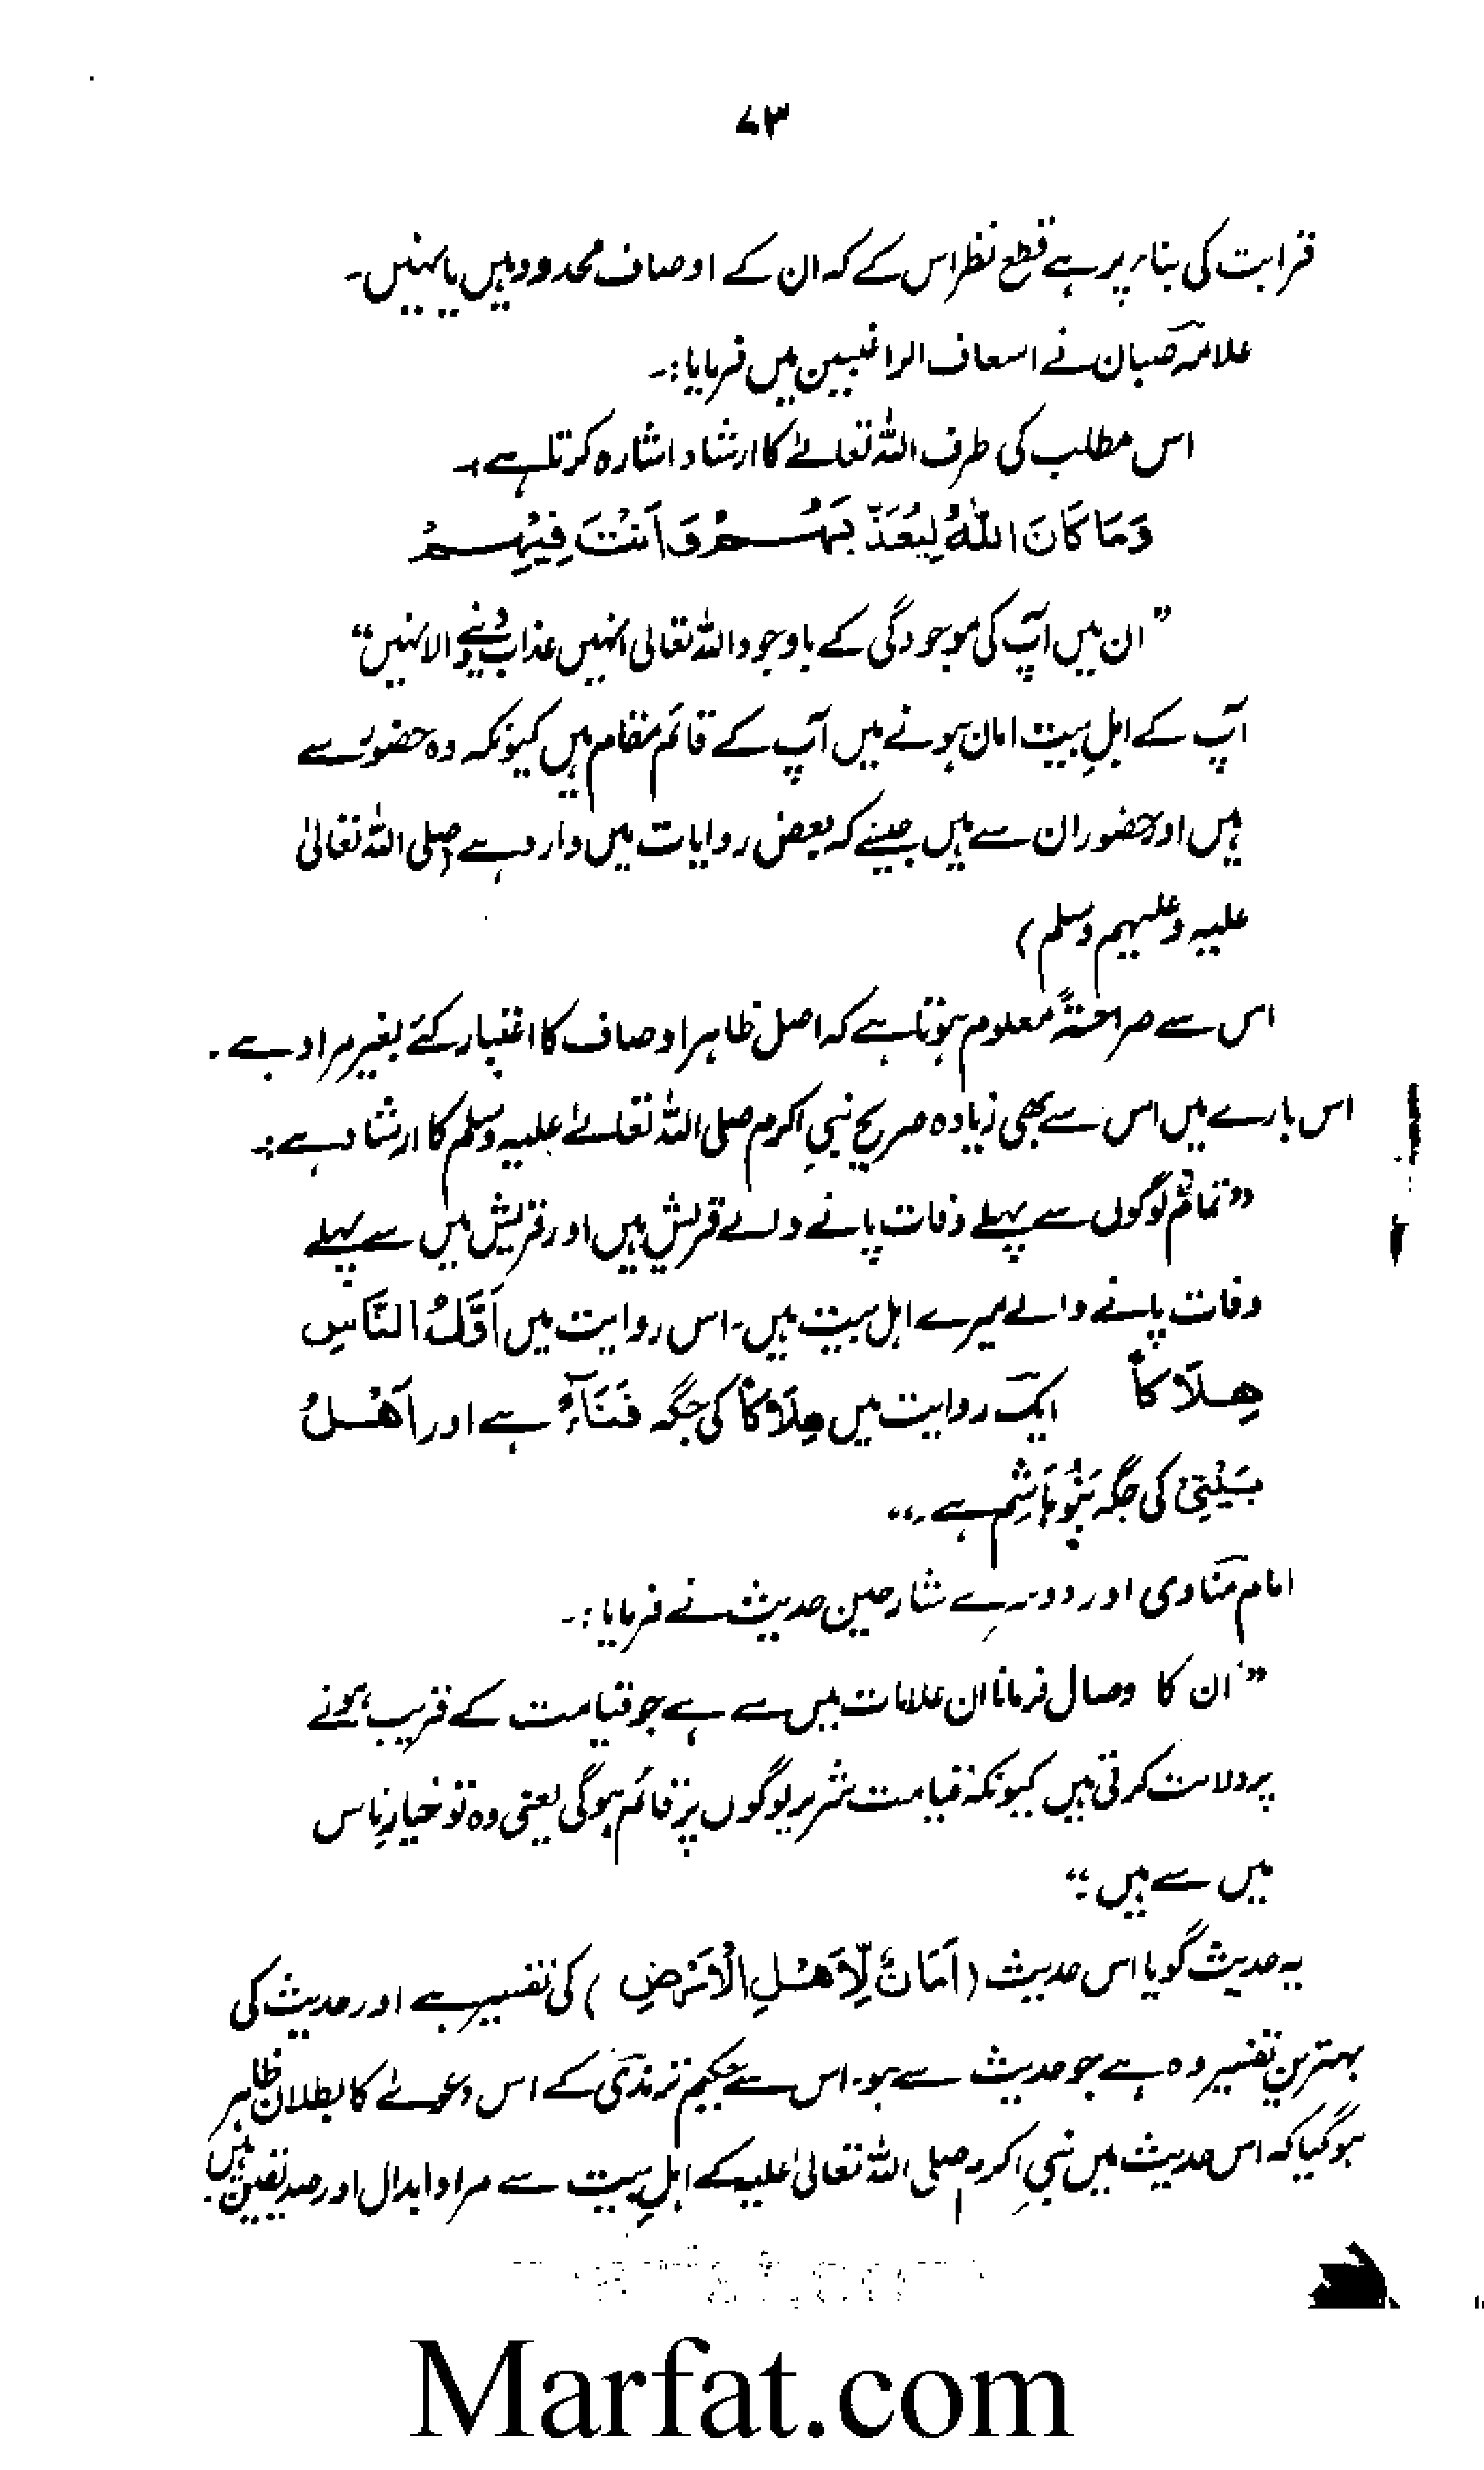 ۷۳
قرابت کی بناء پر ہے قطع نظر اس کے کہ ان کے اوصاف محدود ہیں یا نہیں۔
علامہ صبان نے اسعاف الراغبین میں فرمایا:۔
اس مطلب کی طرف اللہ تعالےٰ کا ارشاد اشارہ کرتا ہے:۔
وَمَا كَانَ اللّٰهُ لِيُعَذِّبَهُمْ وَاَنْتَ فِيْهِمْ
"ان میں آپ کی موجودگی کے باوجود اللہ تعالی انہیں عذاب دینے والا نہیں"
آپ کے اہلِ بیت امان ہونے میں آپ کے قائم مقام ہیں کیونکہ وہ حضور سے
ہیں اور حضور ان سے ہیں جیسے کہ بعض روایات میں وارد ہے (صلی اللہ تعالیٰ
علیہ وعلیہم وسلم)
اس سے صراحتہً معلوم ہوتا ہے کہ اصل ظاہر اوصاف کا اعتبار کئے بغیر مراد ہے۔
اس بارے میں اس سے بھی زیادہ صریح نبی اکرم صلی اللہ تعالےٰ علیہ وسلم کا ارشاد ہے:۔
"تمام لوگوں سے پہلے وفات پانے والے قریش ہیں اور قریش میں سے پہلے
وفات پانے والے میرے اہل بیت ہیں۔ اس روایت میں اَوَّلُ النَّاسِ
هِلَاكًا ایک روایت میں هِلَاكًا کی جگہ فَنَاءً ہے اور اَهْلُ
بَيْتِیْ کی جگہ بَنُوْ هَاشِم ہے۔"
امام مناوی اور دوسرے شارحین حدیث نے فرمایا:۔
"ان کا وصال فرمانا ان علامات میں سے ہے جو قیامت کے قریب ہونے
پر دلالت کرتی ہیں کیونکہ قیامت شریر لوگوں پر قائم ہوگی یعنی وہ تو خیارِ ناس
میں سے ہیں۔"
یہ حدیث گویا اس حدیث (اَمَانٌ لِّاَهْلِ الْاَرْضِ) کی تفسیر ہے اور حدیث کی
بہترین تفسیر وہ ہے جو حدیث سے ہو۔ اس سے حکیم ترمذی کے اس دعوے کا بطلان ظاہر
ہوگیا کہ اس حدیث میں نبیِ اکرم صلی اللہ تعالیٰ علیہ کے اہلِ بیت سے مراد ابدال اور صدیقین ہیں۔
Marfat.com